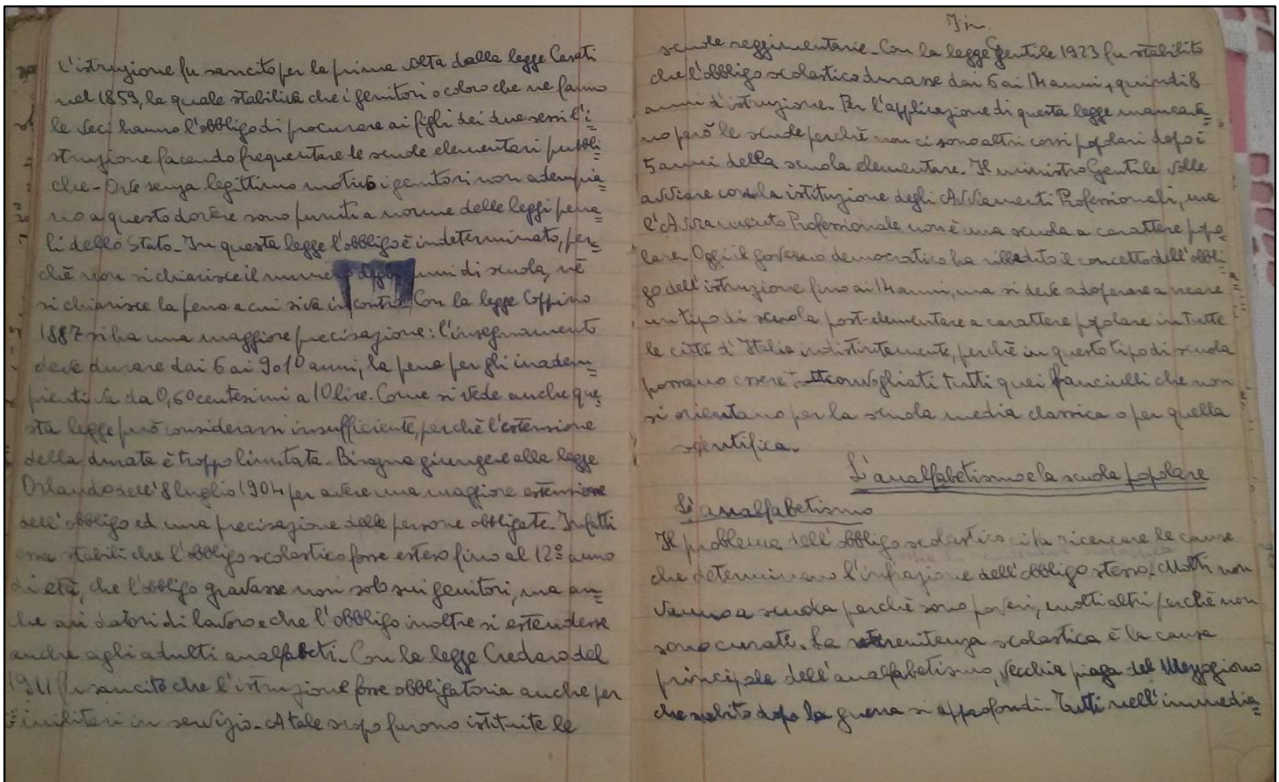 l'istruzione fu sancito per la prima volta dalla legge Casati
nel 1859, la quale stabiliva che i genitori o coloro che ne fanno
le veci hanno l'obbligo di procurare ai figli dei due sessi l'i=
struzione facendo frequentare le scuole elementari pubbli=
che. Ove senza legittimo motivo i genitori non adempia=
no a questo dovere sono puniti a norme delle leggi pena=
li dello Stato. In questa legge l'obbligo è indeterminato, per=
chè non si chiarisce il numero degli anni di scuola, nè
si chiarisce la pena a cui si va incontro. Con la legge Coppino
1887 si ha una maggiore precisazione: l'insegnamento
deve durare dai 6 ai 9 o 10 anni; la pena per gli inadem=
pienti va da 0,60 centesimi a 10 lire. Come si vede anche que=
sta legge può considerarsi insufficiente, perchè l'estensione
della durata è troppo limitata. Bisogna giungere alla legge
Orlando dell'8 luglio 1904 per avere una maggiore estensione
dell'obbligo ed una precisazione delle persone obbligate. Infatti
essa stabilì che l'obbligo scolastico fosse esteso fino al 12º anno
di età, che l'obbligo gravasse non solo sui genitori, ma an=
che ai datori di lavoro e che l'obbligo inoltre si estendesse
anche agli adulti analfabeti. Con la legge Credaro del
1911 fu sancito che l'istruzione fosse obbligatoria anche per
i militari in servizio. A tale scopo furono istituite le
scuole reggimentarie. Con la legge Gentile 1923 fu stabilito
che l'obbligo scolastico durasse dai 6 ai 14 anni, quindi 8
anni d'istruzione. Per l'applicazione di questa legge mancava=
no però le scuole perchè non ci sono altri corsi popolari dopo i
5 anni della scuola elementare. Il ministro Gentile volle
avviare con la istituzione degli Avviamenti Professionali, ma
l'Avviamento Professionale non è una scuola a carattere popo=
lare. Oggi il governo democratico ha ribadito il concetto dell'obbli=
go dell'istruzione fino ai 14 anni, ma si deve adoperare a creare
un tipo di scuola post-elementare a carattere popolare in tutte
le città d'Italia indistintamente, perchè in questo tipo di scuola
possano essere convogliati tutti quei fanciulli che non
si orientano per la scuola media classica o per quella
scientifica.
L'analfabetismo e la scuola popolare
L'analfabetismo
Il problema dell'obbligo scolastico ci fa ricercare le cause
che determinano l'infrazione dell'obbligo stesso. Molti non
vanno a scuola perchè sono poveri, molti altri perchè non
sono curati. La renitenza scolastica è la causa
principale dell'analfabetismo, vecchia piaga del Mezzogiorno
che subito dopo la guerra si approfondì. Tutti nell'immedia=